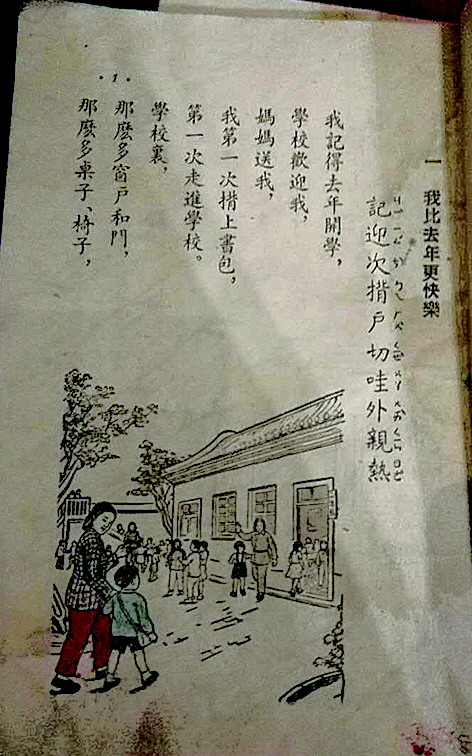 一 我比去年更快樂
記迎次揹戶切哇外親熱
我記得去年開學，
學校歡迎我，
媽媽送我，
我第一次揹上書包，
第一次走進學校。
學校裏，
那麽多窗戶和門，
那麽多桌子、椅子，